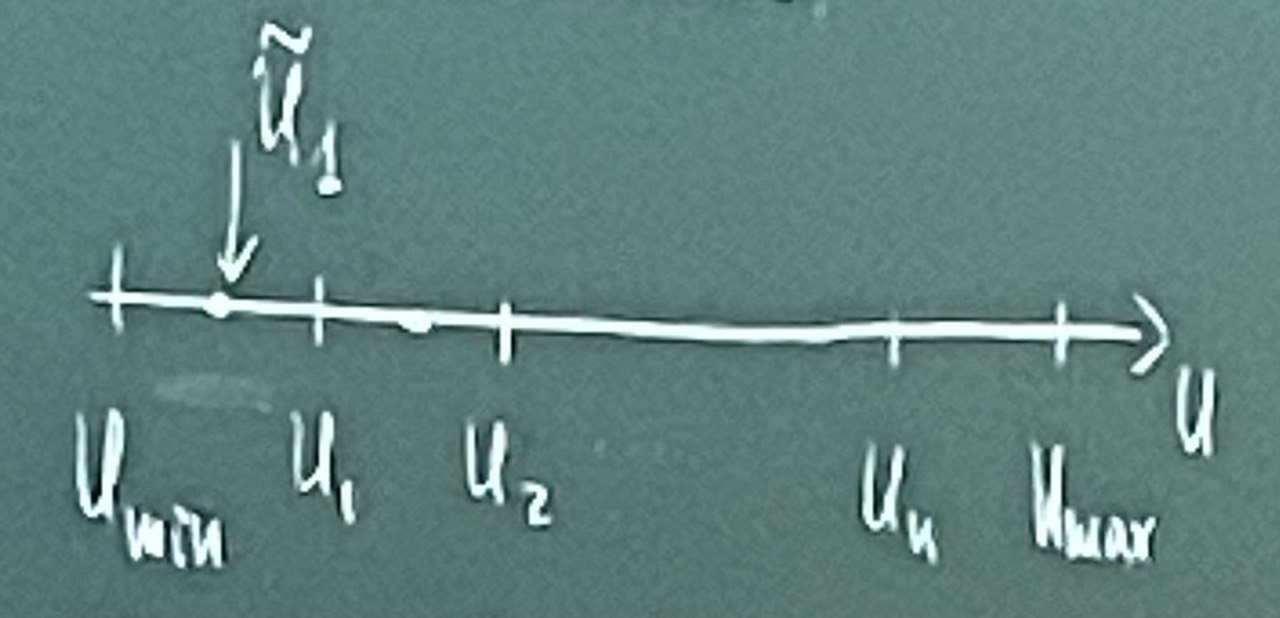 ũ₁
u_min u₁ u₂ u_n u_max u